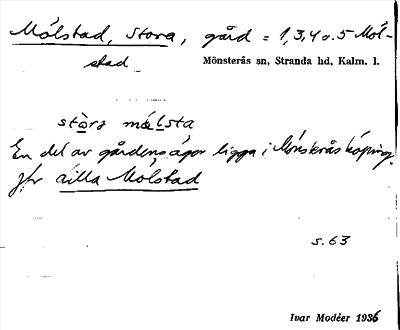 Mölstad, Stora, gård = 1,3,4 o. 5 Möl-
stad
Mönsterås sn, Stranda hd, Kalm. l.
störa målsta
En del av gårdens ägor ligga i Mönsterås köping.
Jfr Lilla Mölstad
s. 63
Ivar Modéer 1936